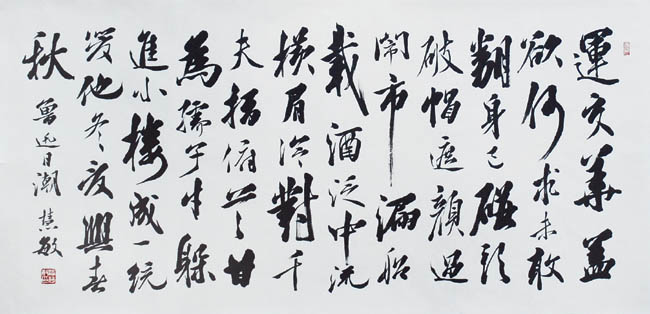 運交華蓋
欲何求未敢
翻身已碰頭
破帽遮顏過
鬧市漏船
載酒泛中流
橫眉冷對千
夫指俯首甘
為孺子牛躲
進小樓成一統
管他冬夏與春
秋 魯迅自嘲 慧敏